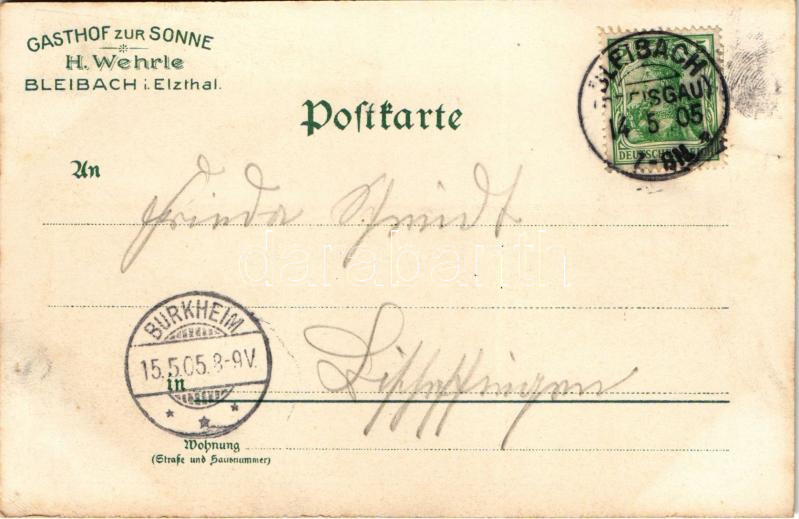 GASTHOF ZUR SONNE
H. Wehrle
BLEIBACH i. Elzthal.
BLEIBACH
(BREISGAU)
14 5 05
7-8N.
DEUTSCHES REICH
Poſtkarte
An
Frieda Schmidt
darabanth
BURKHEIM
15.5.05.8-9V.
in
Bischoffingen
Wohnung
(Straße und Hausnummer)